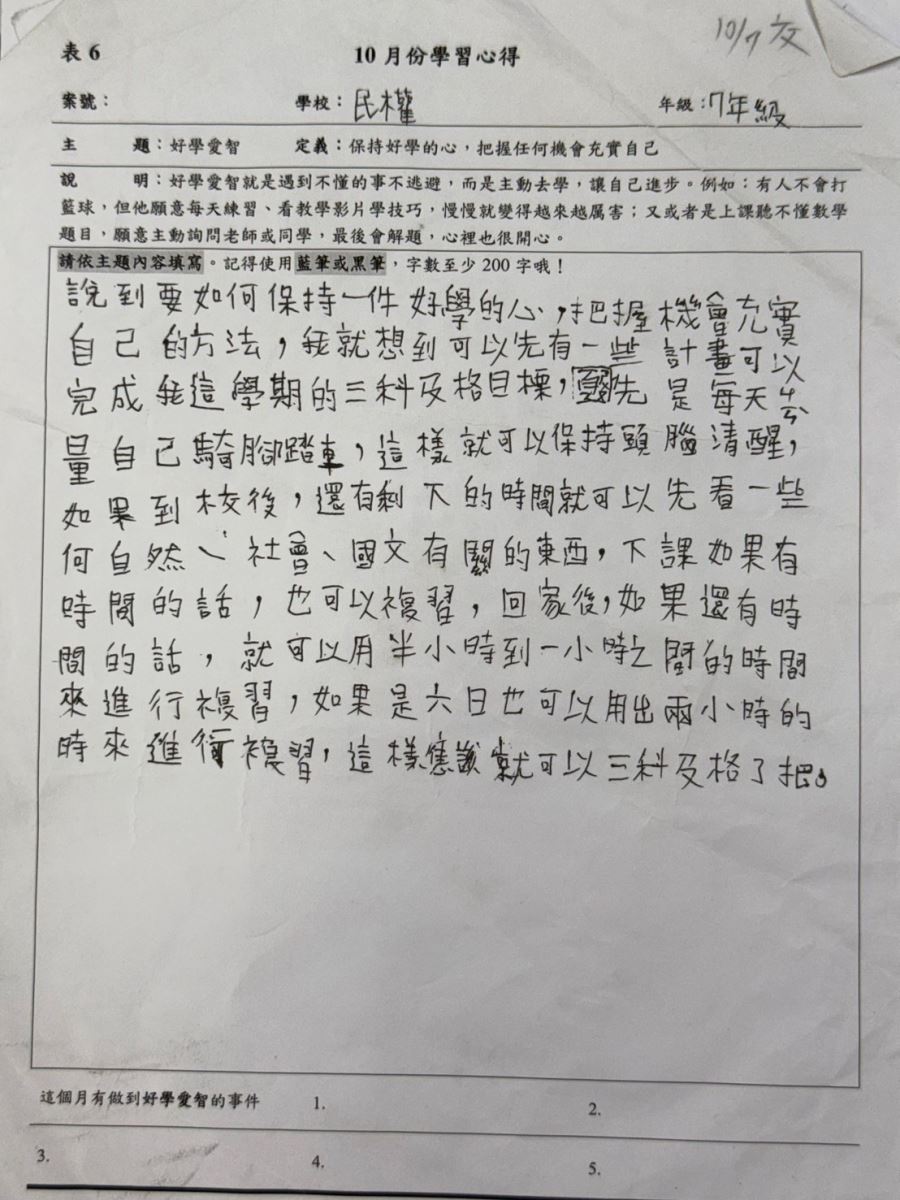 10/7 交
表 6 10 月份學習心得
案號： 學校：民權 年級：7年級
主 題：好學愛智 定義：保持好學的心，把握任何機會充實自己
說 明：好學愛智就是遇到不懂的事不逃避，而是主動去學，讓自己進步。例如：有人不會打
籃球，但他願意每天練習、看教學影片學技巧，慢慢就變得越來越厲害；又或者是上課聽不懂數學
題目，願意主動詢問老師或同學，最後會解題，心裡也很開心。
請依主題內容填寫。記得使用藍筆或黑筆，字數至少 200 字哦！
說到要如何保持一件好學的心，把握機會充實
自己的方法，我就想到可以先有一些計畫可以
完成我這學期的三科及格目標，先是每天ㄐㄣˋ
量自己騎腳踏車，這樣就可以保持頭腦清醒，
如果到校後，還有剩下的時間就可以先看一些
何自然、社會、國文有關的東西，下課如果有
時間的話，也可以複習，回家後，如果還有時
間的話，就可以用半小時到一小時之間的時間
來進行複習，如果是六日也可以用出兩小時的
時來進行複習，這樣應該就可以三科及格了把。
這個月有做到好學愛智的事件 1. 2.
3. 4. 5.